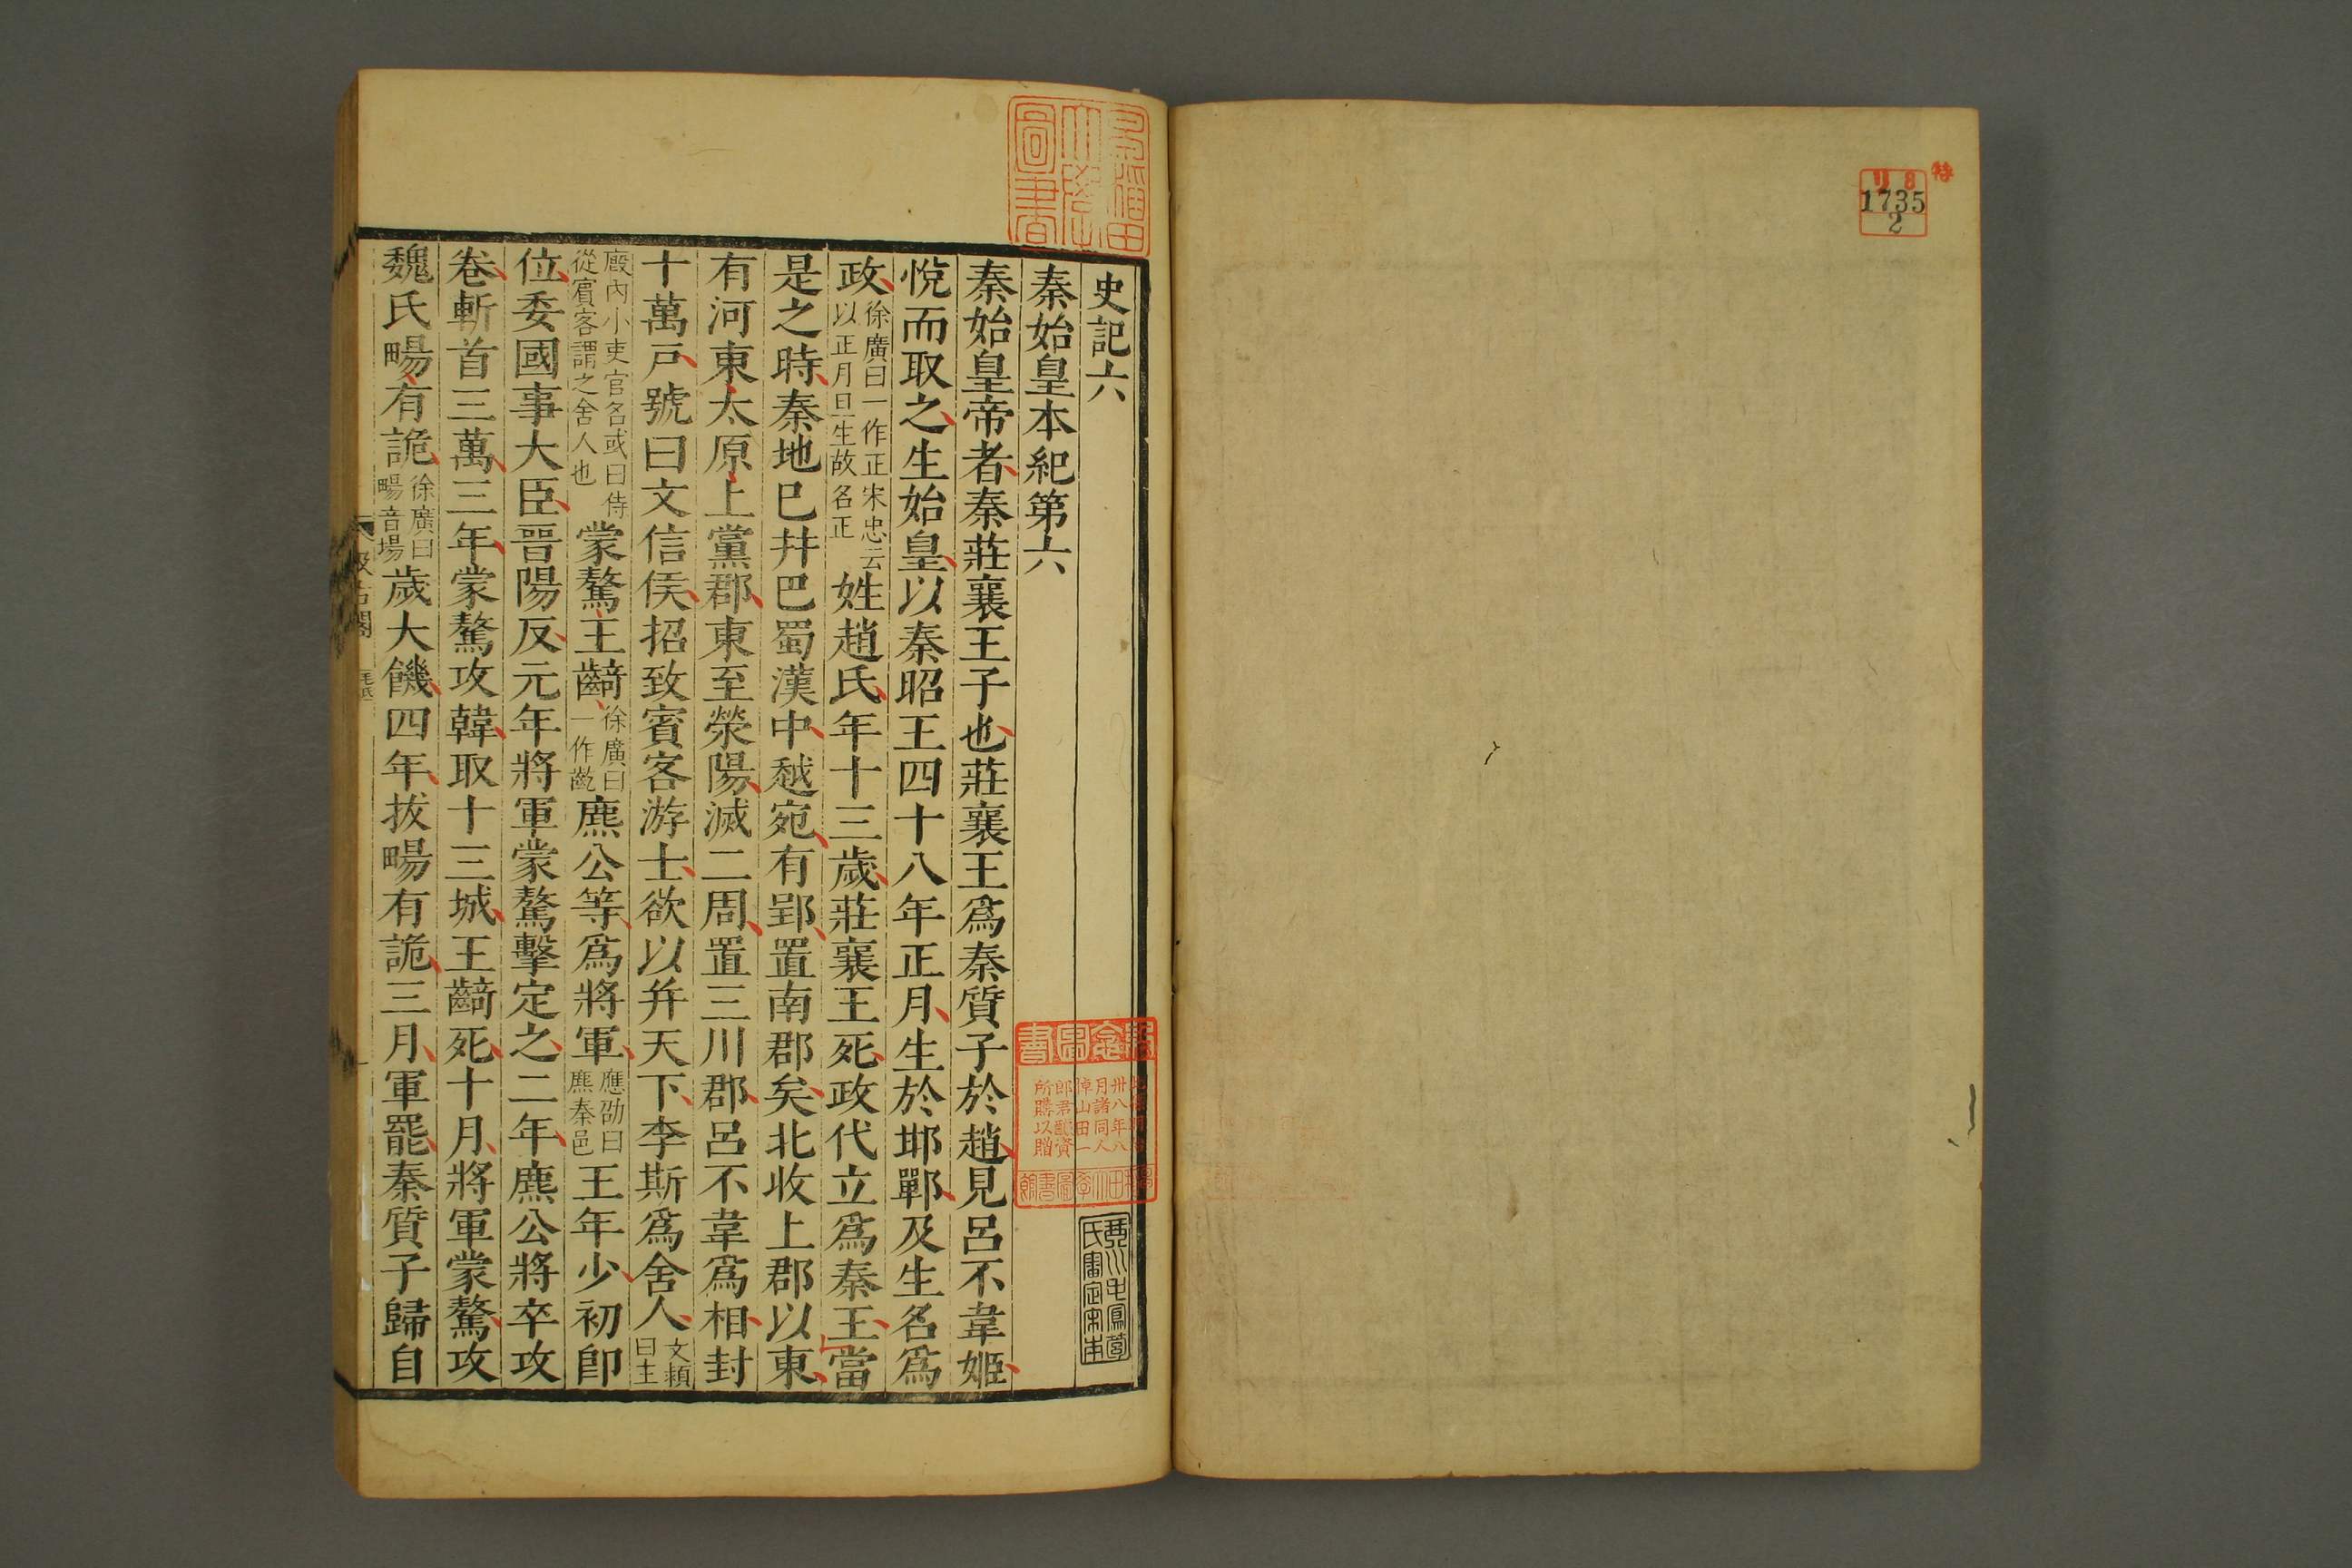 特
リ8
1735
2
早稲田
大學
圖書
史記六
秦始皇本紀第六
秦始皇帝者秦莊襄王子也莊襄王爲秦質子於趙見呂不韋姬
悅而取之生始皇以秦昭王四十八年正月生於邯鄲及生名爲
政徐廣曰一作正宋忠云以正月旦生故名正姓趙氏年十三歲莊襄王死政代立爲秦王當
是之時秦地巳幷巴蜀漢中越宛有郢置南郡矣北收上郡以東
有河東太原上黨郡東至滎陽滅二周置三川郡呂不韋爲相封
十萬戸號曰文信侯招致賓客游士欲以幷天下李斯爲舍人文穎曰主
廏內小吏官名或曰侍從賓客謂之舍人也蒙驁王齮徐廣曰一作齕麃公等爲將軍應劭曰麃秦邑王年少初卽
位委國事大臣晉陽反元年將軍蒙驁擊定之二年麃公將卒攻
卷斬首三萬三年蒙驁攻韓取十三城王齮死十月將軍蒙驁攻
魏氏畼有詭徐廣曰畼音場歲大饑四年拔畼有詭三月軍罷秦質子歸自